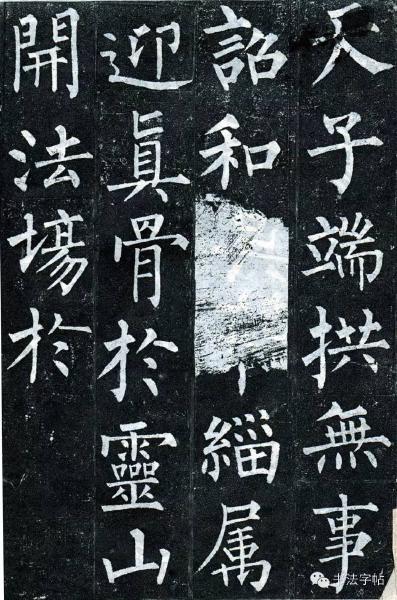 天子端拱無事
詔和緇属
迎眞骨扵靈山
開法場扵
书法字帖